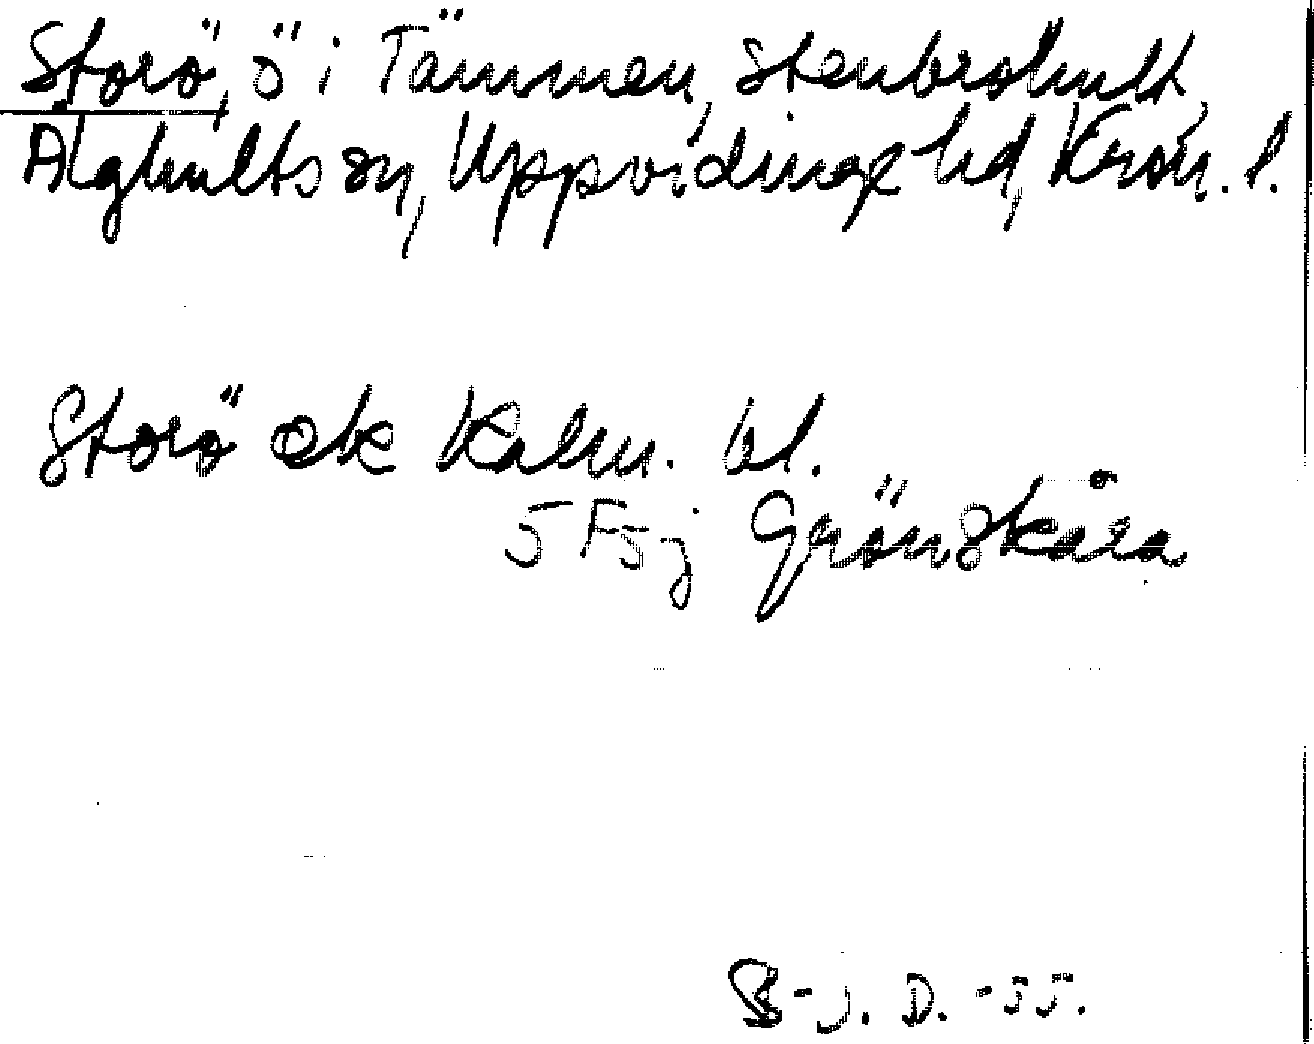 Storö, ö i Tämmen, Stenbrohult,
Älghults sn, Uppvidinge hd, Kron. l.
Storö ek Kalm. bl.
5 F 5 j Grönskåra
B-J. D. -55.